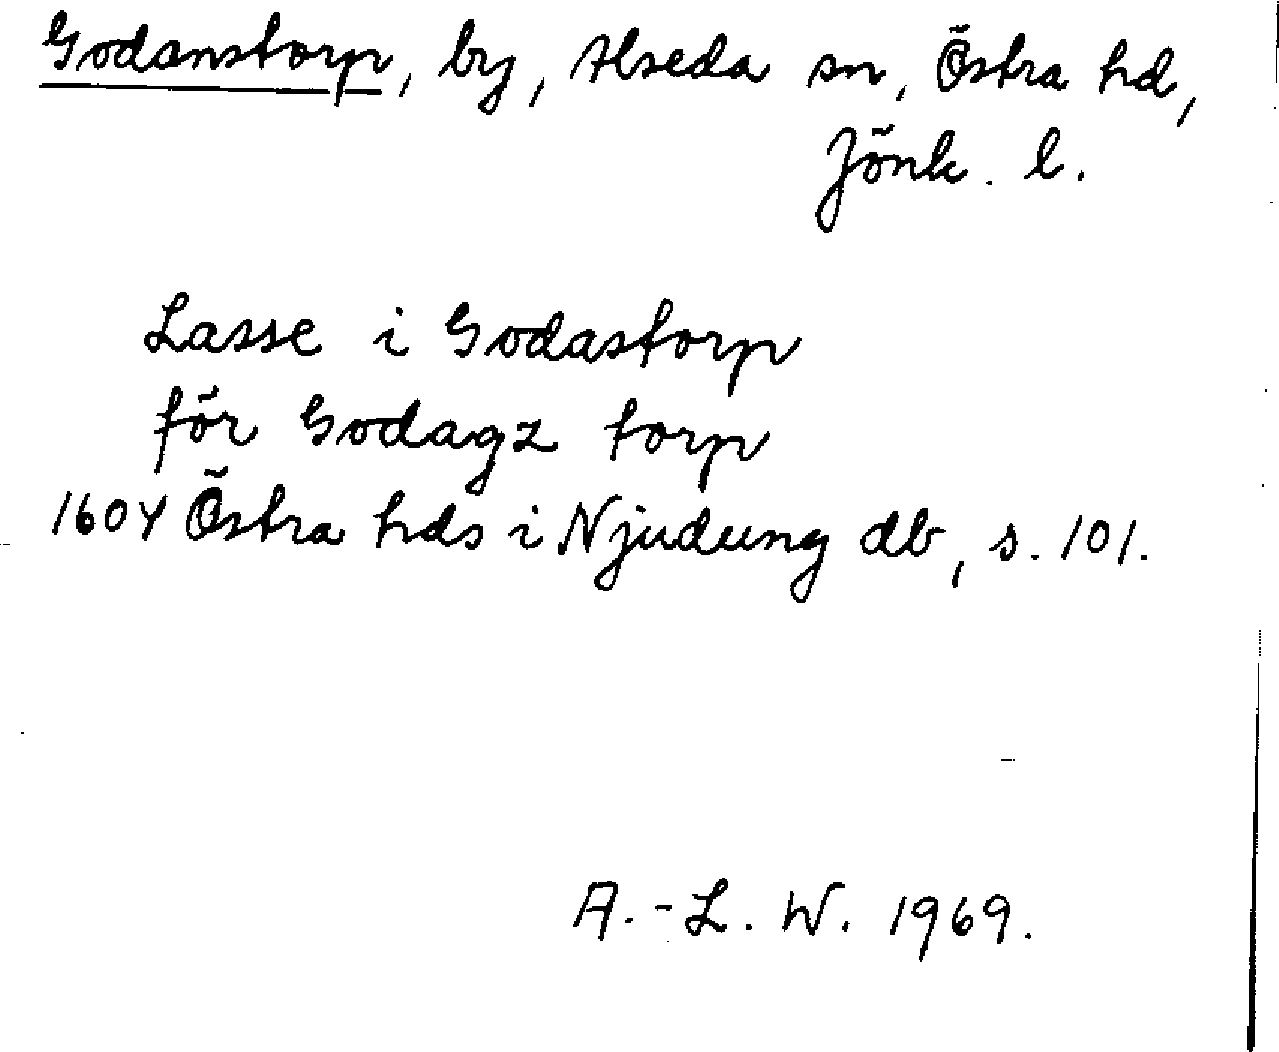 Godanstorp, by, Alseda sn, Östra hd,
Jönk. l.
Lasse i Godastorp
för Godagz torp
1604 Östra hds i Njudung db, s. 101.
A.-L. W. 1969.